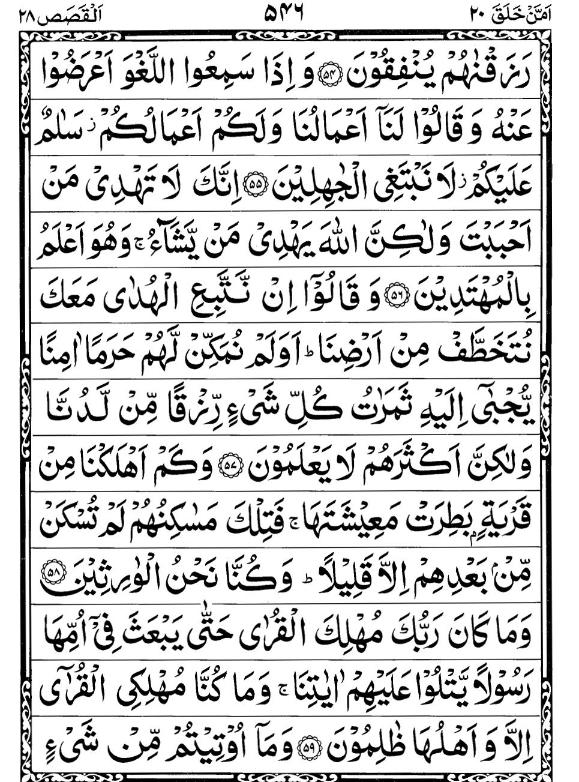 اَمَّنْ خَلَقَ ٢٠ ۵۴۶ اَلْقَصَص ٢٨
رَزَقْنٰهُمْ يُنْفِقُوْنَ ﴿۵۴﴾ وَ اِذَا سَمِعُوا اللَّغْوَ اَعْرَضُوْا
عَنْهُ وَ قَالُوْا لَنَاۤ اَعْمَالُنَا وَلَكُمْ اَعْمَالُكُمْ ز سَلٰمٌ
عَلَيْكُمْ ز لَا نَبْتَغِى الْجٰهِلِيْنَ ﴿۵۵﴾ اِنَّكَ لَا تَهْدِىْ مَنْ
اَحْبَبْتَ وَلٰكِنَّ اللّٰهَ يَهْدِىْ مَنْ يَّشَآءُ ۚ وَهُوَ اَعْلَمُ
بِالْمُهْتَدِيْنَ ﴿۵۶﴾ وَ قَالُوْۤا اِنْ نَّتَّبِعِ الْهُدٰى مَعَكَ
نُتَخَطَّفْ مِنْ اَرْضِنَا ؕ اَوَلَمْ نُمَكِّنْ لَّهُمْ حَرَمًا اٰمِنًا
يُّجْبٰٓى اِلَيْهِ ثَمَرٰتُ كُلِّ شَىْءٍ رِّزْقًا مِّنْ لَّدُنَّا
وَلٰكِنَّ اَكْثَرَهُمْ لَا يَعْلَمُوْنَ ﴿۵۷﴾ وَكَمْ اَهْلَكْنَا مِنْ
قَرْيَةٍۭ بَطِرَتْ مَعِيْشَتَهَا ۚ فَتِلْكَ مَسٰكِنُهُمْ لَمْ تُسْكَنْ
مِّنْۢ بَعْدِهِمْ اِلَّا قَلِيْلًا ؕ وَكُنَّا نَحْنُ الْوٰرِثِيْنَ ﴿۵۸﴾
وَمَا كَانَ رَبُّكَ مُهْلِكَ الْقُرٰى حَتّٰى يَبْعَثَ فِىْۤ اُمِّهَا
رَسُوْلًا يَّتْلُوْا عَلَيْهِمْ اٰيٰتِنَا ۚ وَمَا كُنَّا مُهْلِكِى الْقُرٰٓى
اِلَّا وَ اَهْلُهَا ظٰلِمُوْنَ ﴿۵۹﴾ وَمَاۤ اُوْتِيْتُمْ مِّنْ شَىْءٍ